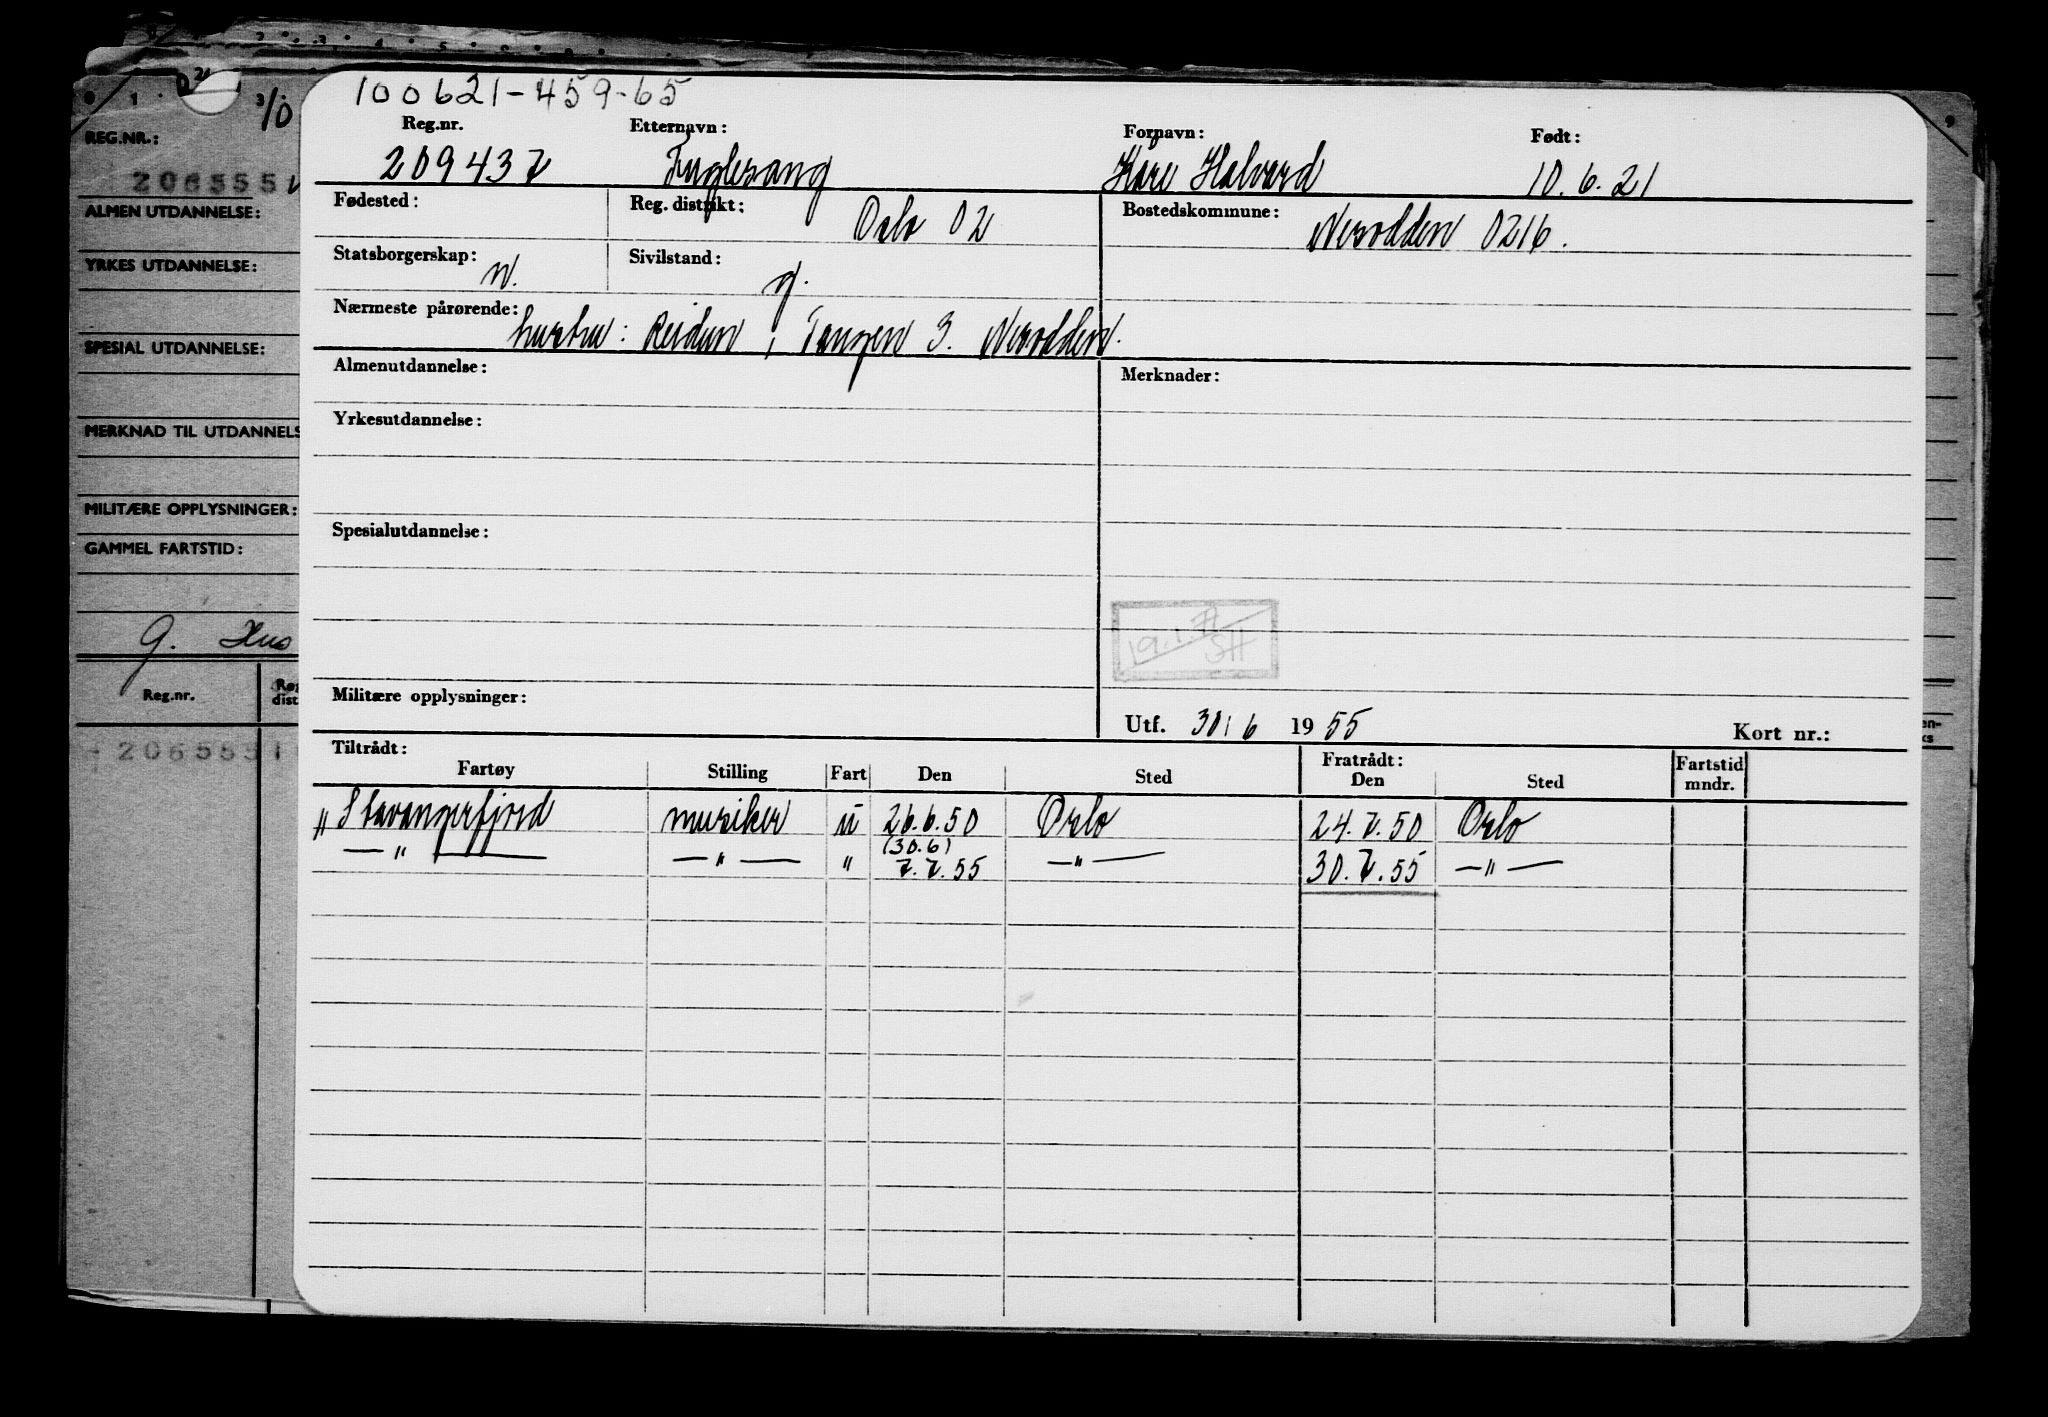 100621-459-65
Reg.nr. Etternavn: Fornavn: Født:
209437 Fuglesang Kåre Halvard 10.6.21
Fødested: Reg. distrikt: Oslo 02 Bostedskommune: Nesodden 0216.
Statsborgerskap: n. Sivilstand: g.
Nærmeste pårørende: hustru: Reidun, Tangen 3. Nesodden.
Almenutdannelse: Merknader:
Yrkesutdannelse:
Spesialutdannelse:
19.1.
SH
Militære opplysninger:
Utf. 30/6 1955 Kort nr.:
Tiltrådt: Fratrådt: Fartstid
Fartøy Stilling Fart Den Sted Den Sted mndr.
" Stavangerfjord musiker u 26.6.50 Oslo 24.7.50 Oslo
(30.6)
—"— —"— " 7.7.55 —"— 30.7.55 —"—
2 3 4 5
0 1 2 3 9
10
REG.NR.:
2065551
ALMEN UTDANNELSE:
YRKES UTDANNELSE:
SPESIAL UTDANNELSE:
MERKNAD TIL UTDANNELS
MILITÆRE OPPLYSNINGER:
GAMMEL FARTSTID:
g. Hus
Reg.nr. Reg
dist
2065551
en-
ks